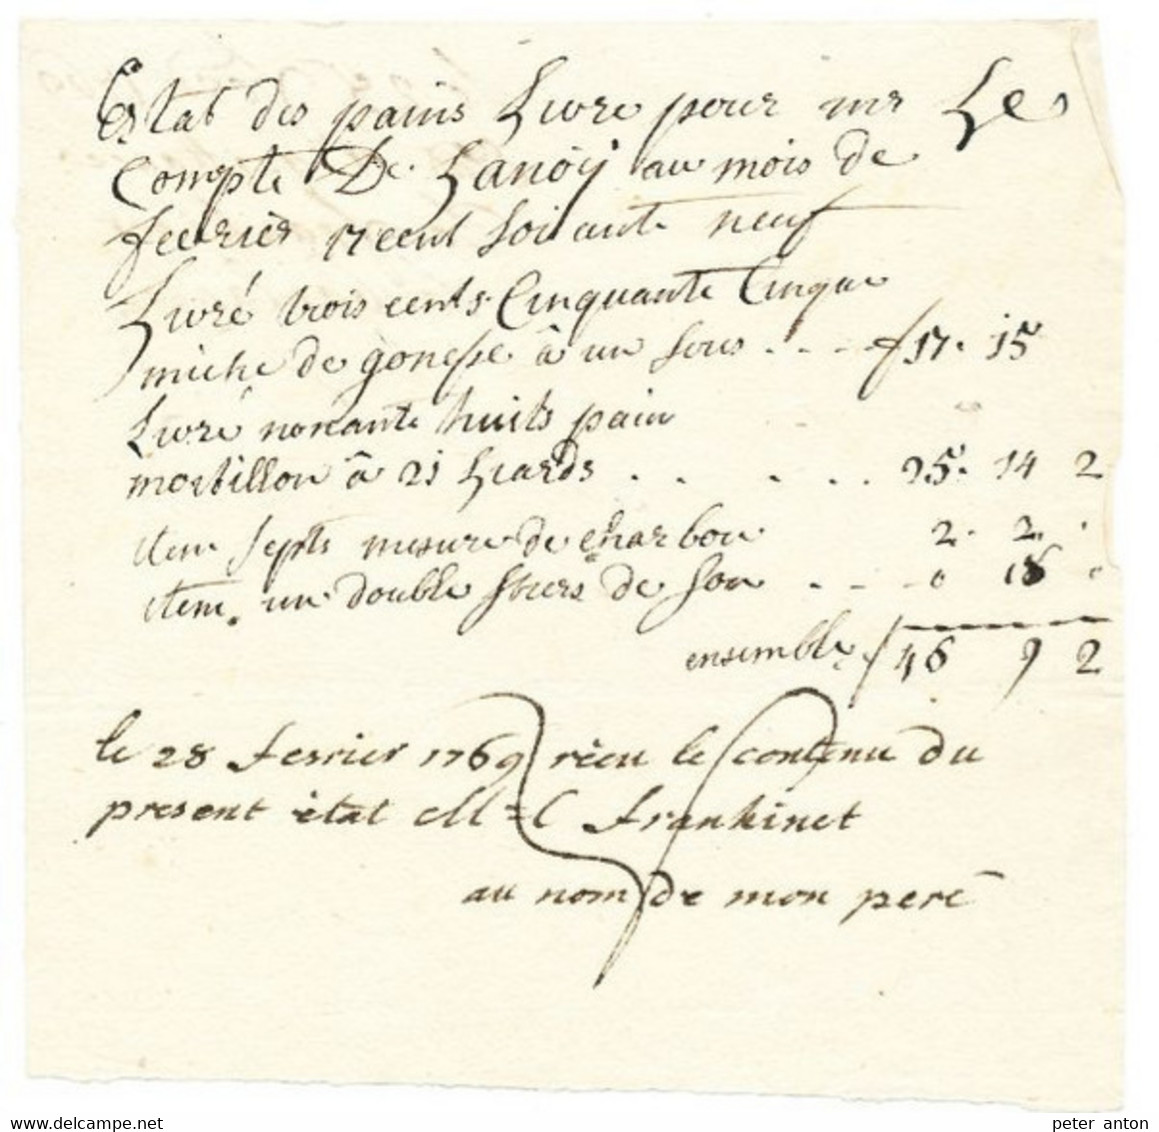 Estat des pains Livre pour mr Le
Compte De Lanoÿ au mois de
fevrier 17 cent soixante neuf
Livré trois cents Cinquante Cinque
miche de gonesse â un sous . . . . f 17. 15
Livré nonante huits pain
mortillon â 21 Liards . . . . . 25. 14 2
item septs mesure de charbon 2. 2.
item un double stiers de son . . . 0 18 0
ensemble f 46 9 2
le 28 fevrier 1769 réçu le contenu du
present état M: C frankinet
au nom de mon pere
peter anton